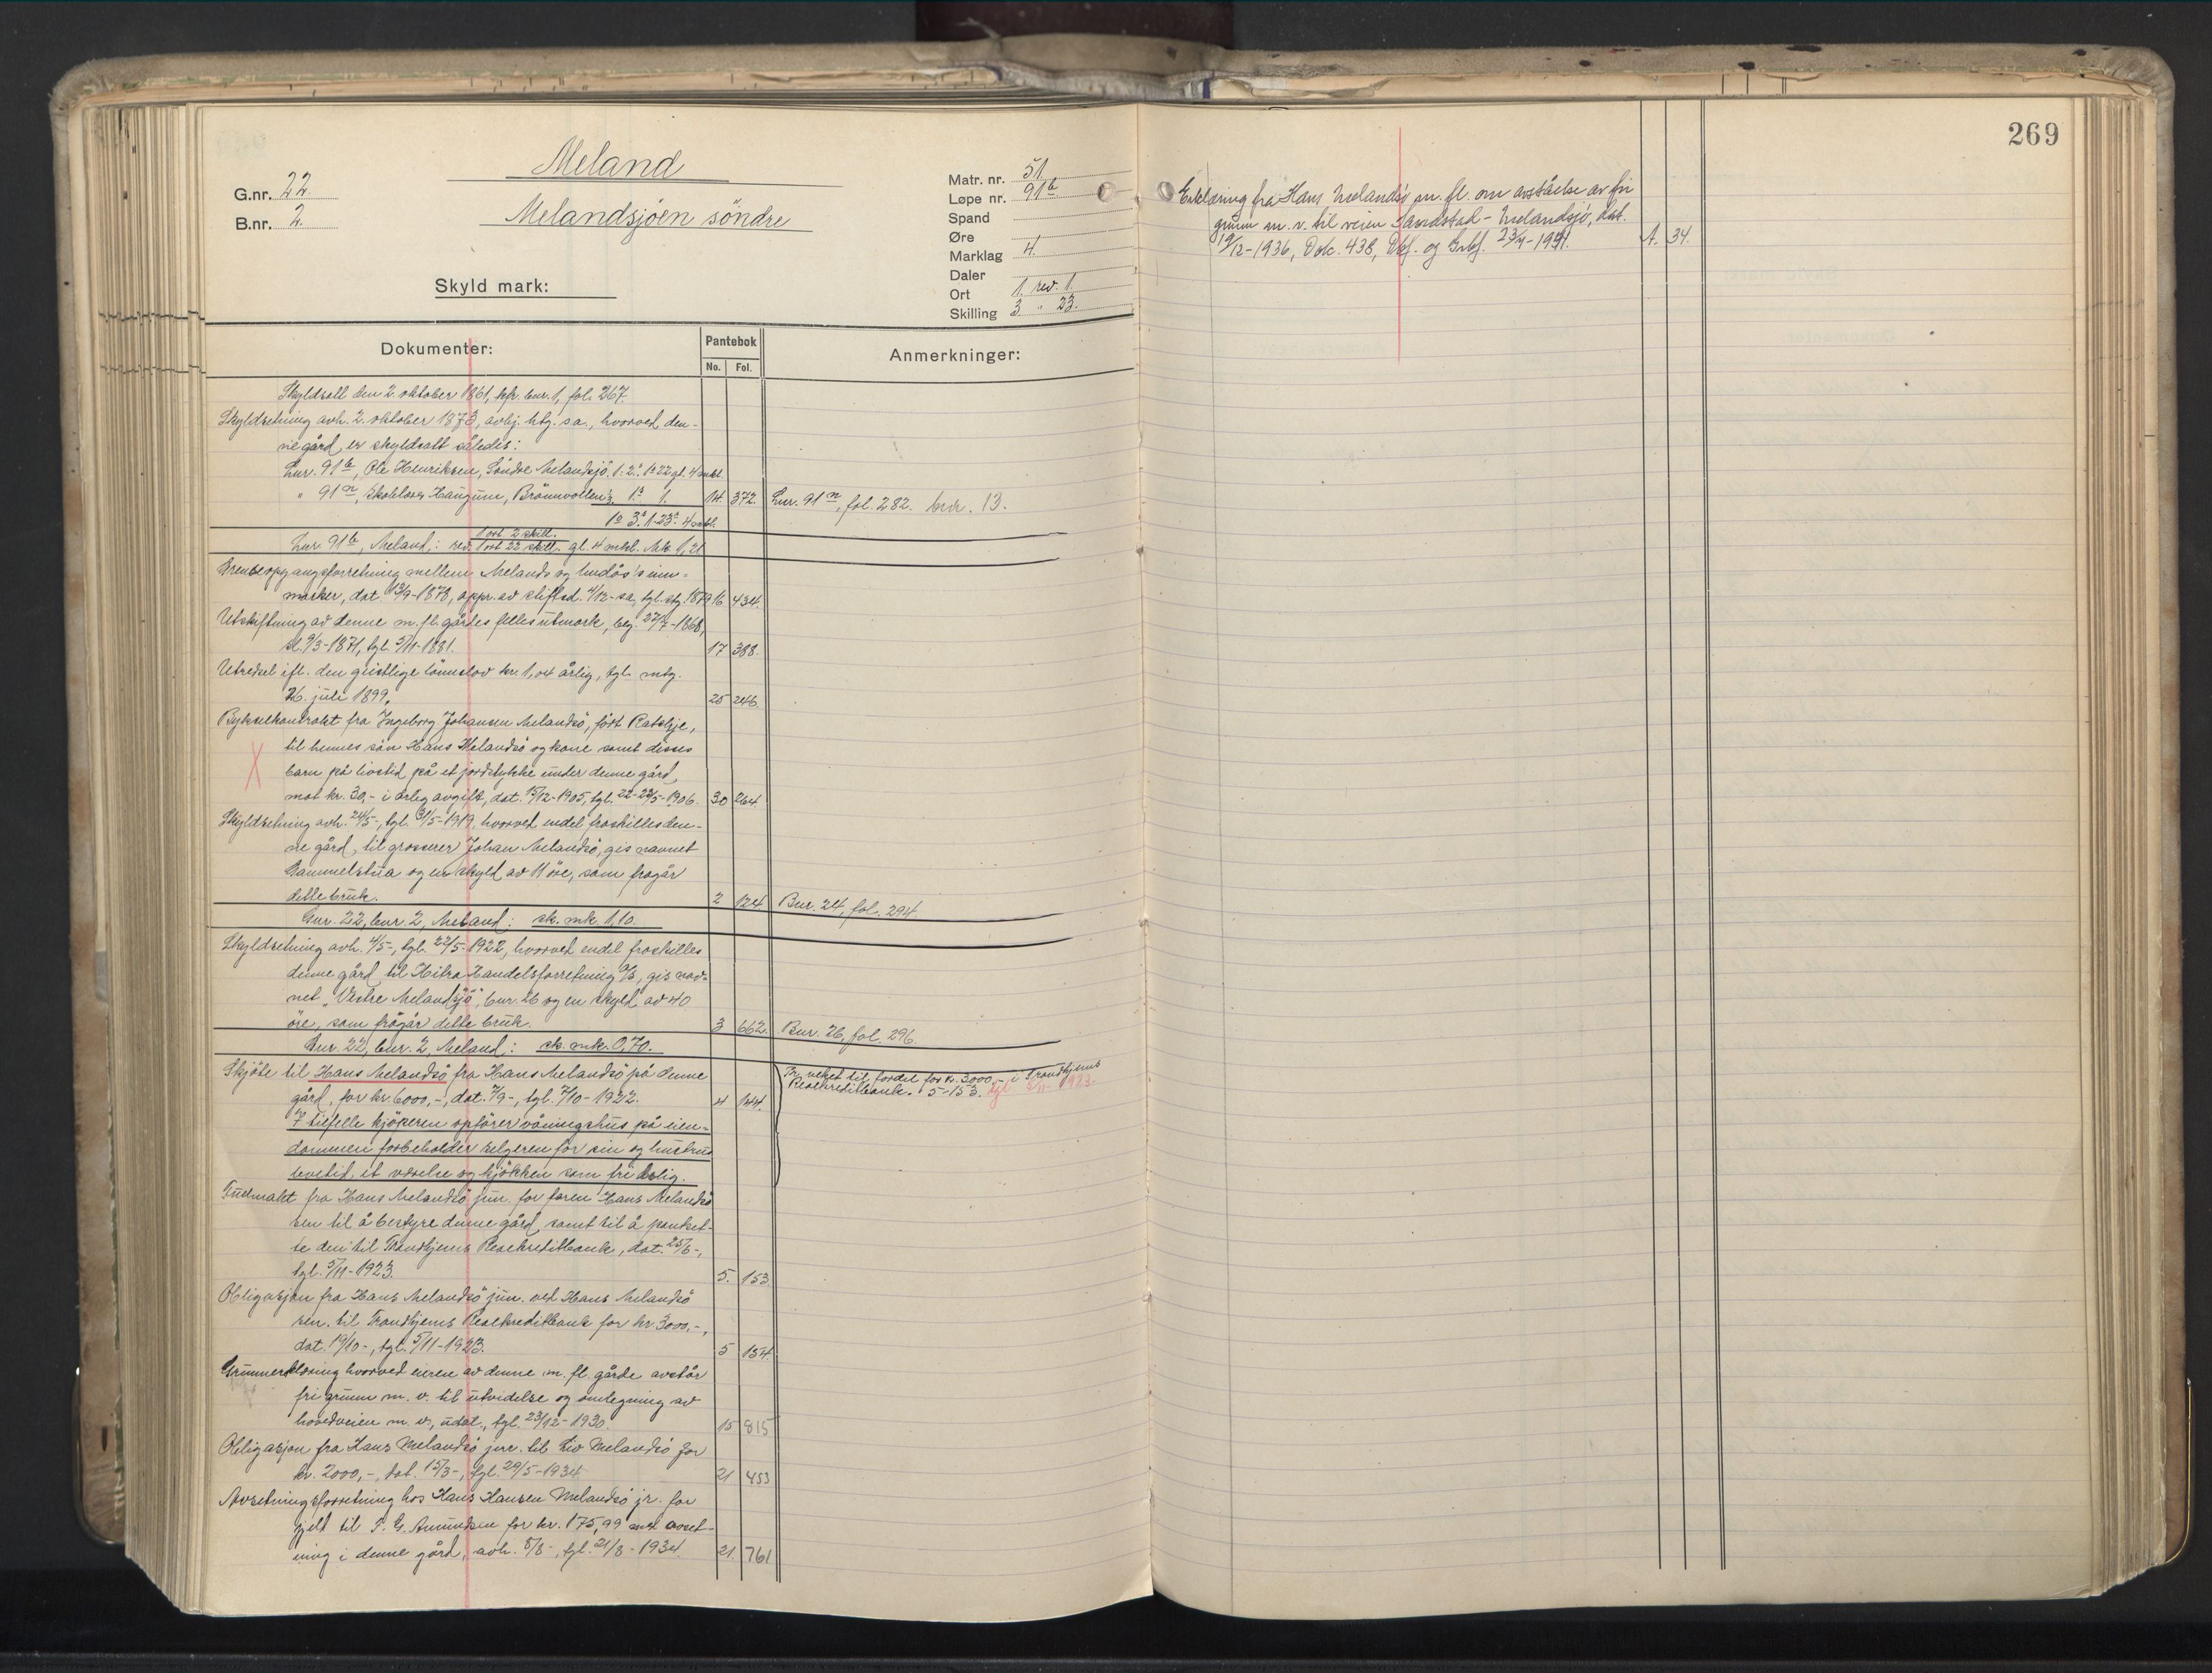 Meland
G.nr. 22.
B.nr. 2.
Melandsjöen söndre
Skyld mark:
Matr. nr. 51
Løpe nr. 91 b
Spand
Øre
Marklag 4.
Daler
Ort 1. rev. 1.
Skilling 3 " 23.
Dokumenter:
Pantebok
No. Fol.
Anmerkninger:
Skyldsatt den 2. oktober 1861, kfr. bnr. 1, fol. 267.
Skyldsetning avh. 2. oktober 1873, avhj. htg. s.a., hvorved den-
ne gård er skyldsatt således:
Lnr. 91 b, Ole Henriksen, Söndre Melandsjö, 1. 2. 1. 22 gl. 4 mkl.
" 91 n, Haugum, Brönnvollen, 1. 1. 14. 372. Lnr. 91 n, fol. 282. bnr. 13.
1 3. 1. 23. 4 mkl.
Lnr. 91 b, Meland: rev. 1 ort 2 skill. 1 ort 22 skill. gl. 4 mkl. Mk. 1,21
Grenseopgangsforretning mellem Melands og inn-
marker, dat. 13/9-1878, appr. av stiftsd. 4/12-s.a., tgl. htg. 1879 16 434.
Utskiftning av denne m. fl. gårdes felles utmark, beg. 27/7-1868,
sl. 9/3-1871, tgl. 5/11-1881. 17 388.
Utredsel ifl. den geistlige lönnslov kr. 1,04 årlig, tgl. mtg.
26. juli 1899. 25 246.
Bykselkontrakt fra Ingeborg Johansen Melandsö, født Ratskje,
til hennes sön Hans Melandsö og kone samt disses
barn på livstid på et jordstykke under denne gård,
mot kr. 30,- i årlig avgift, dat. 15/12-1905, tgl. 22-23/5-1906. 30 264
Skyldsetning avh. 24/5-, tgl. 31/5-1919, hvorved endel fraskilles den-
ne gård, til grosserer Johan Melandsö, gis navnet
Gammelstua og en skyld av 11 öre, som fragår
dette bruk. 2 124 Bnr. 24, fol. 294.
Gnr. 22, bnr. 2, Meland: sk. mk. 1,10.
Skyldsetning avh. 4/5-, tgl. 22/5-1922, hvorved endel fraskilles
denne gård til Hitra Handelsforretning A/S, gis nav-
net "Vestre Melandsjö", bnr. 26 og en skyld av 40
öre, som frågår dette bruk. 3 662. Bnr. 26, fol. 296.
Gnr. 22, bnr. 2, Meland: sk. mk. 0,70.
Skjöte til Hans Melandsö fra Hans Melandsö på denne
gård, for kr. 6000,-, dat. 7/9-, tgl. 7/10-1922. 4 144.
Er veket til fordel for kr. 3000,- i Trondhjems
Realkreditbank. 5-153. tgl. 5/11-1923.
I tilfelle kjöperen opförer våningshus på eien-
dommen forbeholder selgeren for sin og hustrus
levetid, et værelse og kjökken som fri bolig.
Fullmakt fra Hans Melandsö jun. for faren Hans Melandsö
sen. til å bestyre denne gård samt til å pantset-
te den til Trondhjems Realkreditbank, dat. 25/6-,
tgl. 5/11-1923. 5. 153
Obligasjon fra Hans Melandsö jun. ved Hans Melandsö
sen. til Trondhjems Realkreditbank for kr. 3000,-,
dat. 19/10-, tgl. 5/11-1923. 5 154.
Grunnerklæring hvorved eieren av denne m. fl. gårde avstår
fri grunn m. v. til utvidelse og omlegning av
hovedveien m. v., udat., tgl. 23/12-1930. 15 815
Obligasjon fra Hans Melandsö jnr. til Liv Melandsö for
kr. 2000,-, dat. 15/3-, tgl. 29/5-1934. 21 453
Avsetningsforretning hos Hans Hansen Melandsö jr. for
gjeld til F. G. Amundsen for kr. 175,99 med avset-
ning i denne gård, avh. 8/8-, tgl. 21/8-1934. 21. 761
269
Erklæring fra Hans Melandsö m. fl. om avståelse av fri
grunn m. v. til veien Sandstad-Melandsjö, dat.
19/12-1936, Dok. 438, Dbf. og Gnbf. A. 34.